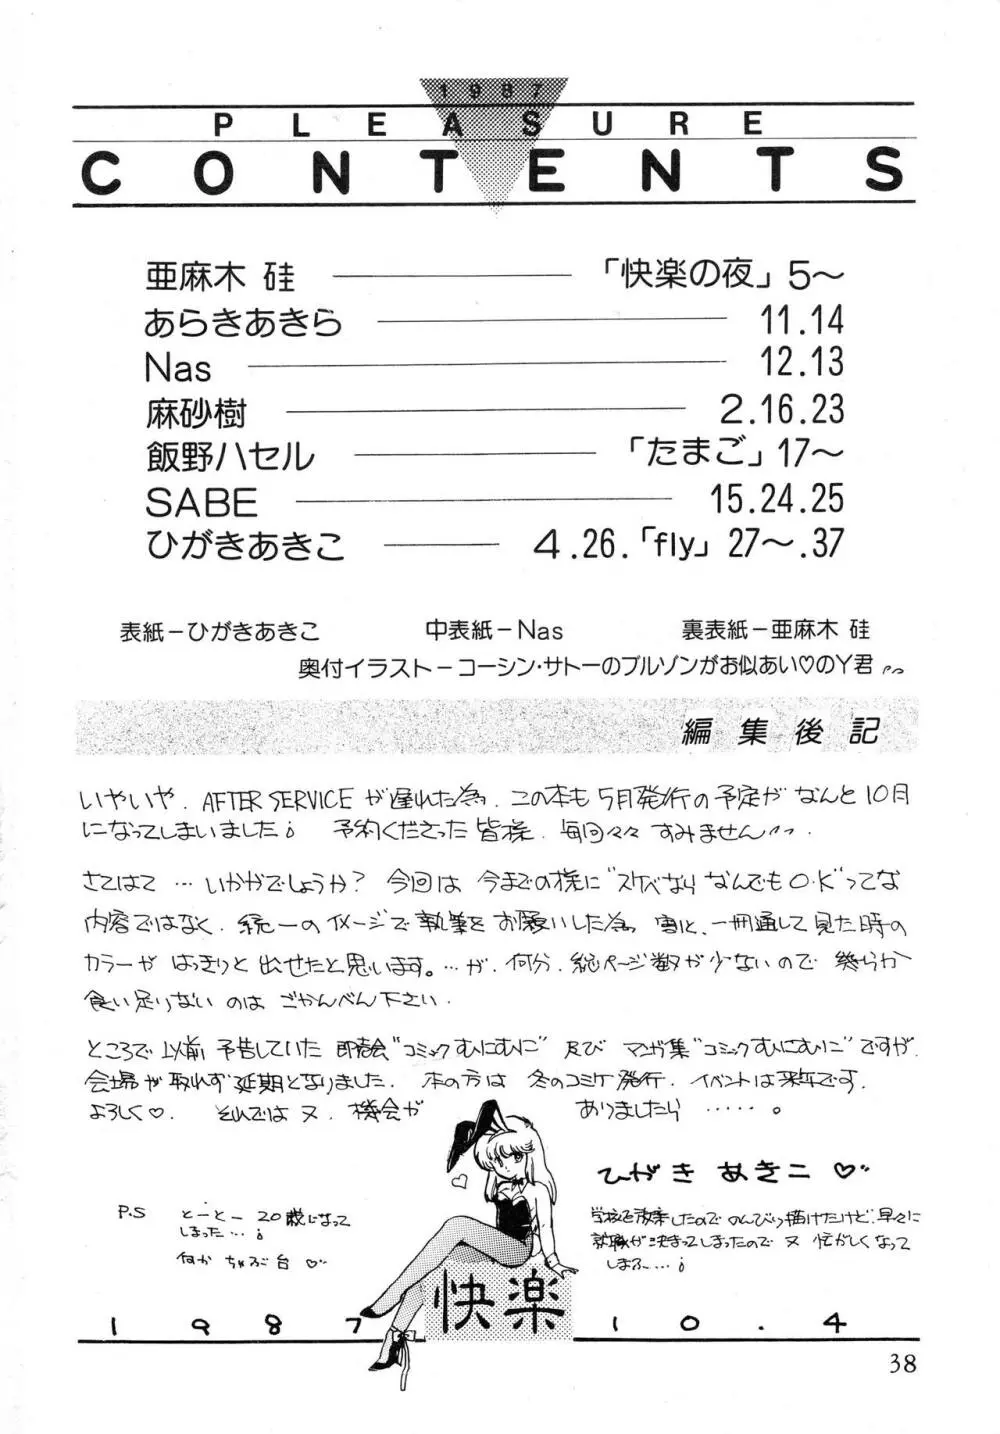 1987
PLEASURE
CONTENTS
亜麻木 硅 「快楽の夜」5〜
あらきあきら 11.14
Nas 12.13
麻砂樹 2.16.23
飯野ハセル 「たまご」17〜
SABE 15.24.25
ひがきあきこ 4.26.「fly」27〜.37
表紙−ひがきあきこ 中表紙−Nas 裏表紙−亜麻木 硅
奥付イラスト−コーシン・サトーのブルゾンがお似あい♡のY君
編集後記
いやいや、AFTER SERVICEが遅れた為、この本も5月発行の予定がなんと10月
になってしまいました！ 予約くださった皆様、毎回々々すみません
さてはて…いかがでしょうか？ 今回は今までの様に"スケベならなんでもO.K"ってな
内容ではなく、統一のイメージで執筆をお願いした為、一冊通して見た時の
カラーがはっきりと出せたと思います。…が、何分、総ページ数が少ないので幾らか
食い足りないのはごかんべん下さい．
ところで以前予告していた即売会"コミックむにむに"及びマンガ集"コミックむにむに"ですが、
会場が取れず延期となりました．本の方は冬のコミケ発行．イベントは来年です．
よろしく♡． それではヌ、機会が ありましたら……。
ひがきあきこ♡
P.S とーとー20歳になって
しまった…！
何かちゃぶ台♡
学校を放棄したのでのんびり描けたけど、早々に
就職が決まってしまったのでヌ忙がしくなって
しまふ…！
快楽
1987 10.4
38